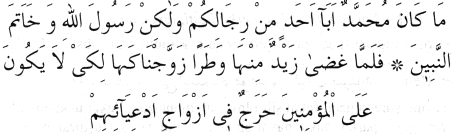 مَا كَانَ مُحَمَّدٌ اَبَآ اَحَدٍ مِنْ رِجَالِكُمْ وَلٰكِنْ رَسُولَ اللّٰهِ وَ خَاتَمَ
النَّبِيّٖنَ ❊ فَلَمَّا غَضٰى زَيْدٌ مِنْهَا وَطَرًا زَوَّجْنَاكَهَا لِكَىْ لاَ يَكُونَ
عَلَى الْمُؤْمِنٖينَ حَرَجٌ فٖى اَزْوَاجِ اَدْعِيَآئِهِمْ